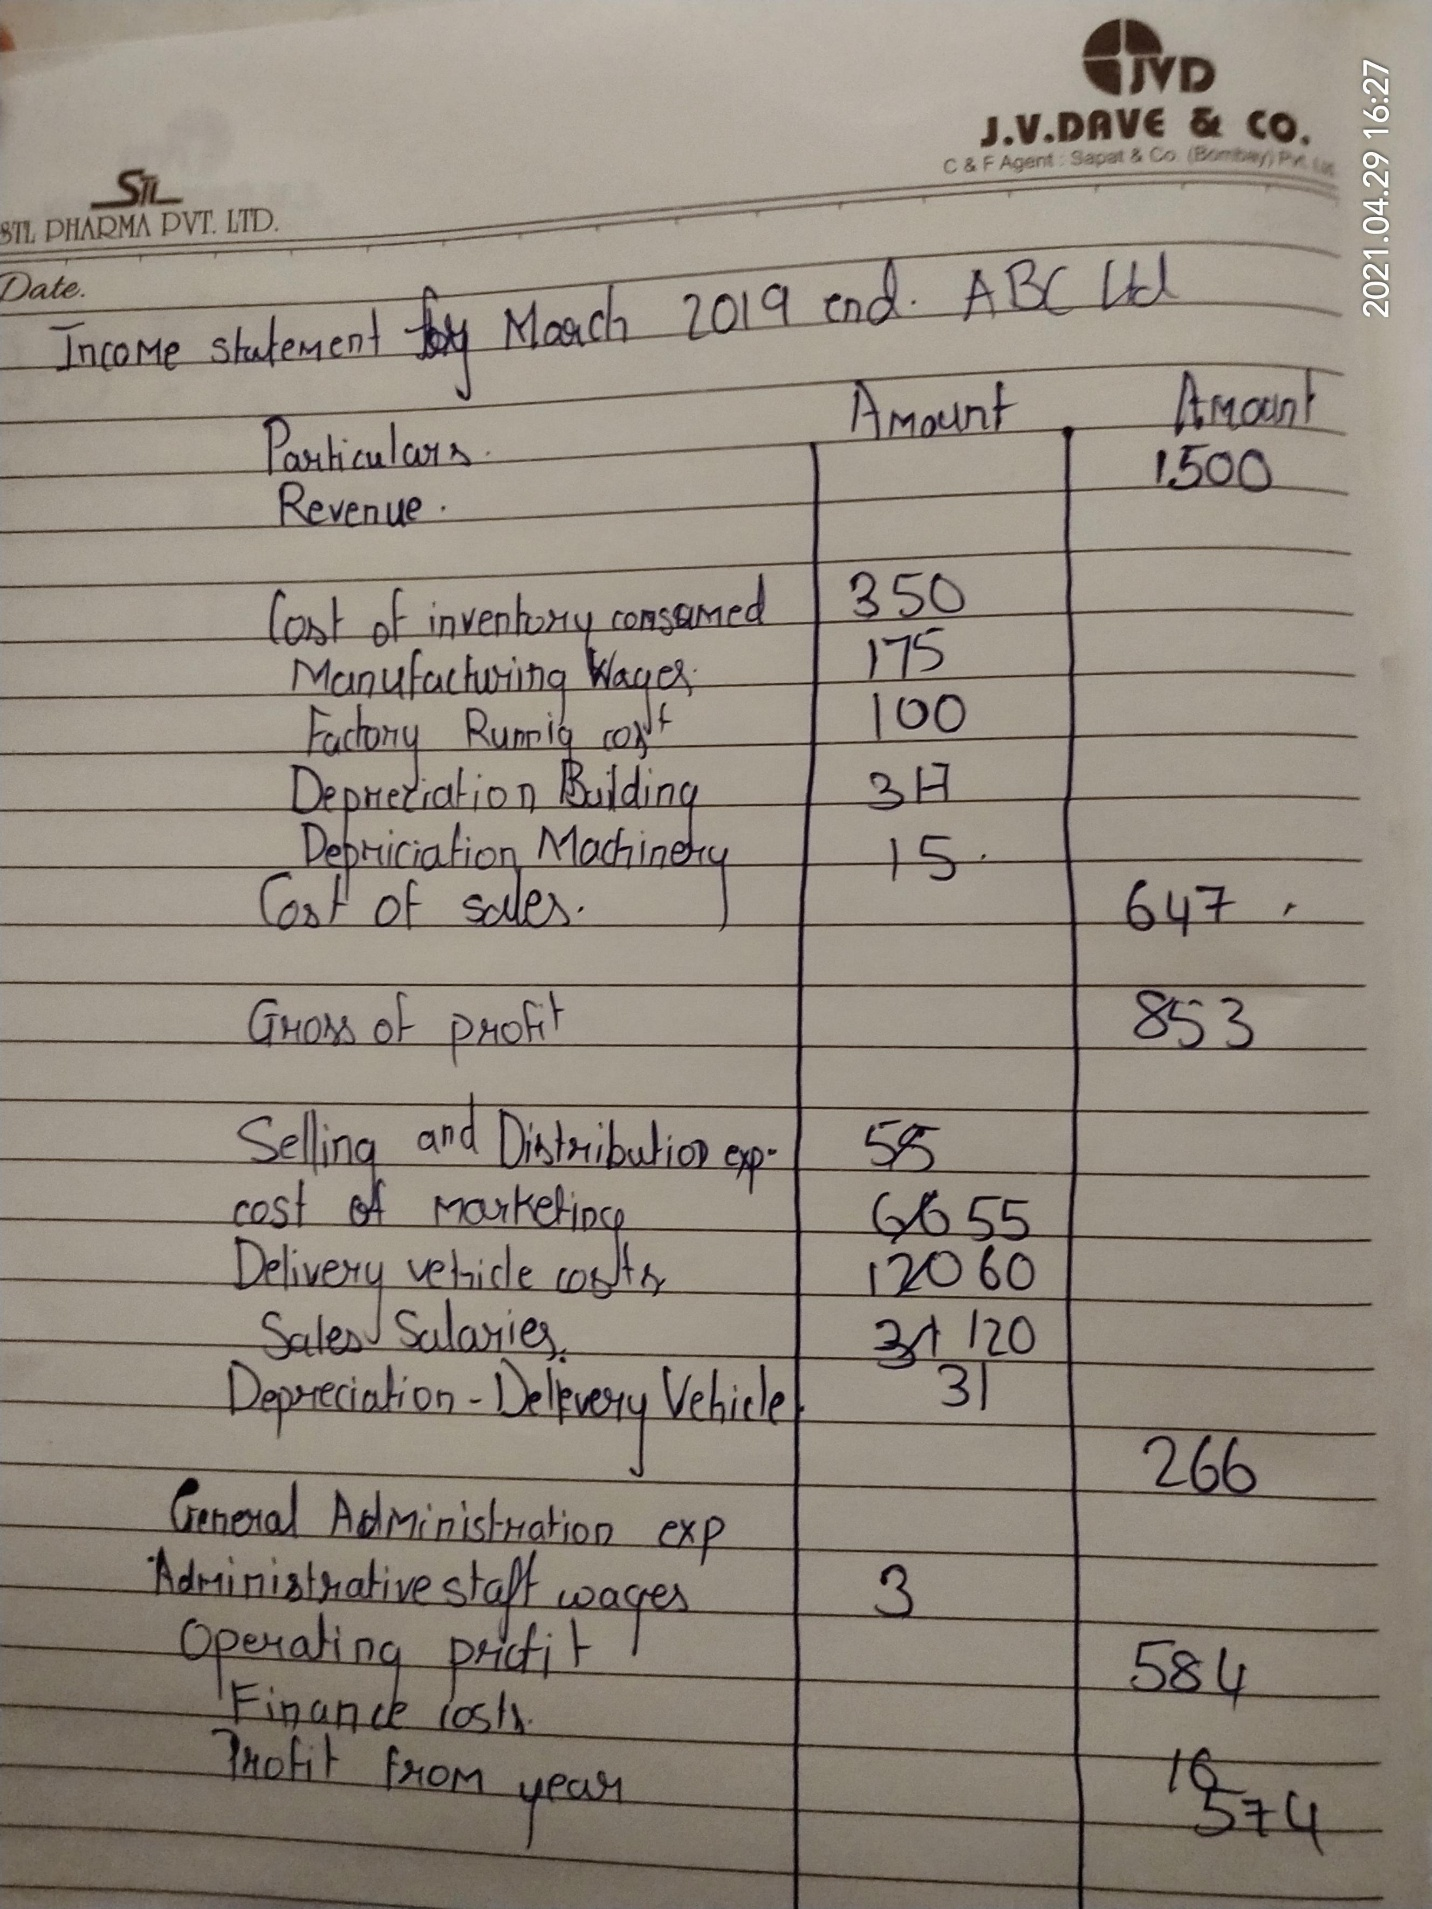 JVD
J.V.DAVE & CO.
C & F Agent : Sapat & Co. (Bombay) Pvt. Ltd.
2021.04.29 16:27
STL
STL PHARMA PVT. LTD.
Date.
Income statement for March 2019 end. ABC Ltd
Particulars. Amount Amount
Revenue. 1500
Cost of inventory consumed 350
Manufacturing Wages. 175
Factory Runnig cost 100
Depreciation Building
Depriciation Machinery 15.
Cost of sales. 647
Gross of profit 853
Selling and Distribution exp-
cost of marketing 55
Delivery vehicle costs 60
Sales Salaries. 120
Depreciation - Delivery Vehicle 31
266
General Administration exp
Administrative staff wages 3
Operating profit 584
Finance costs. 10
Profit from year 574